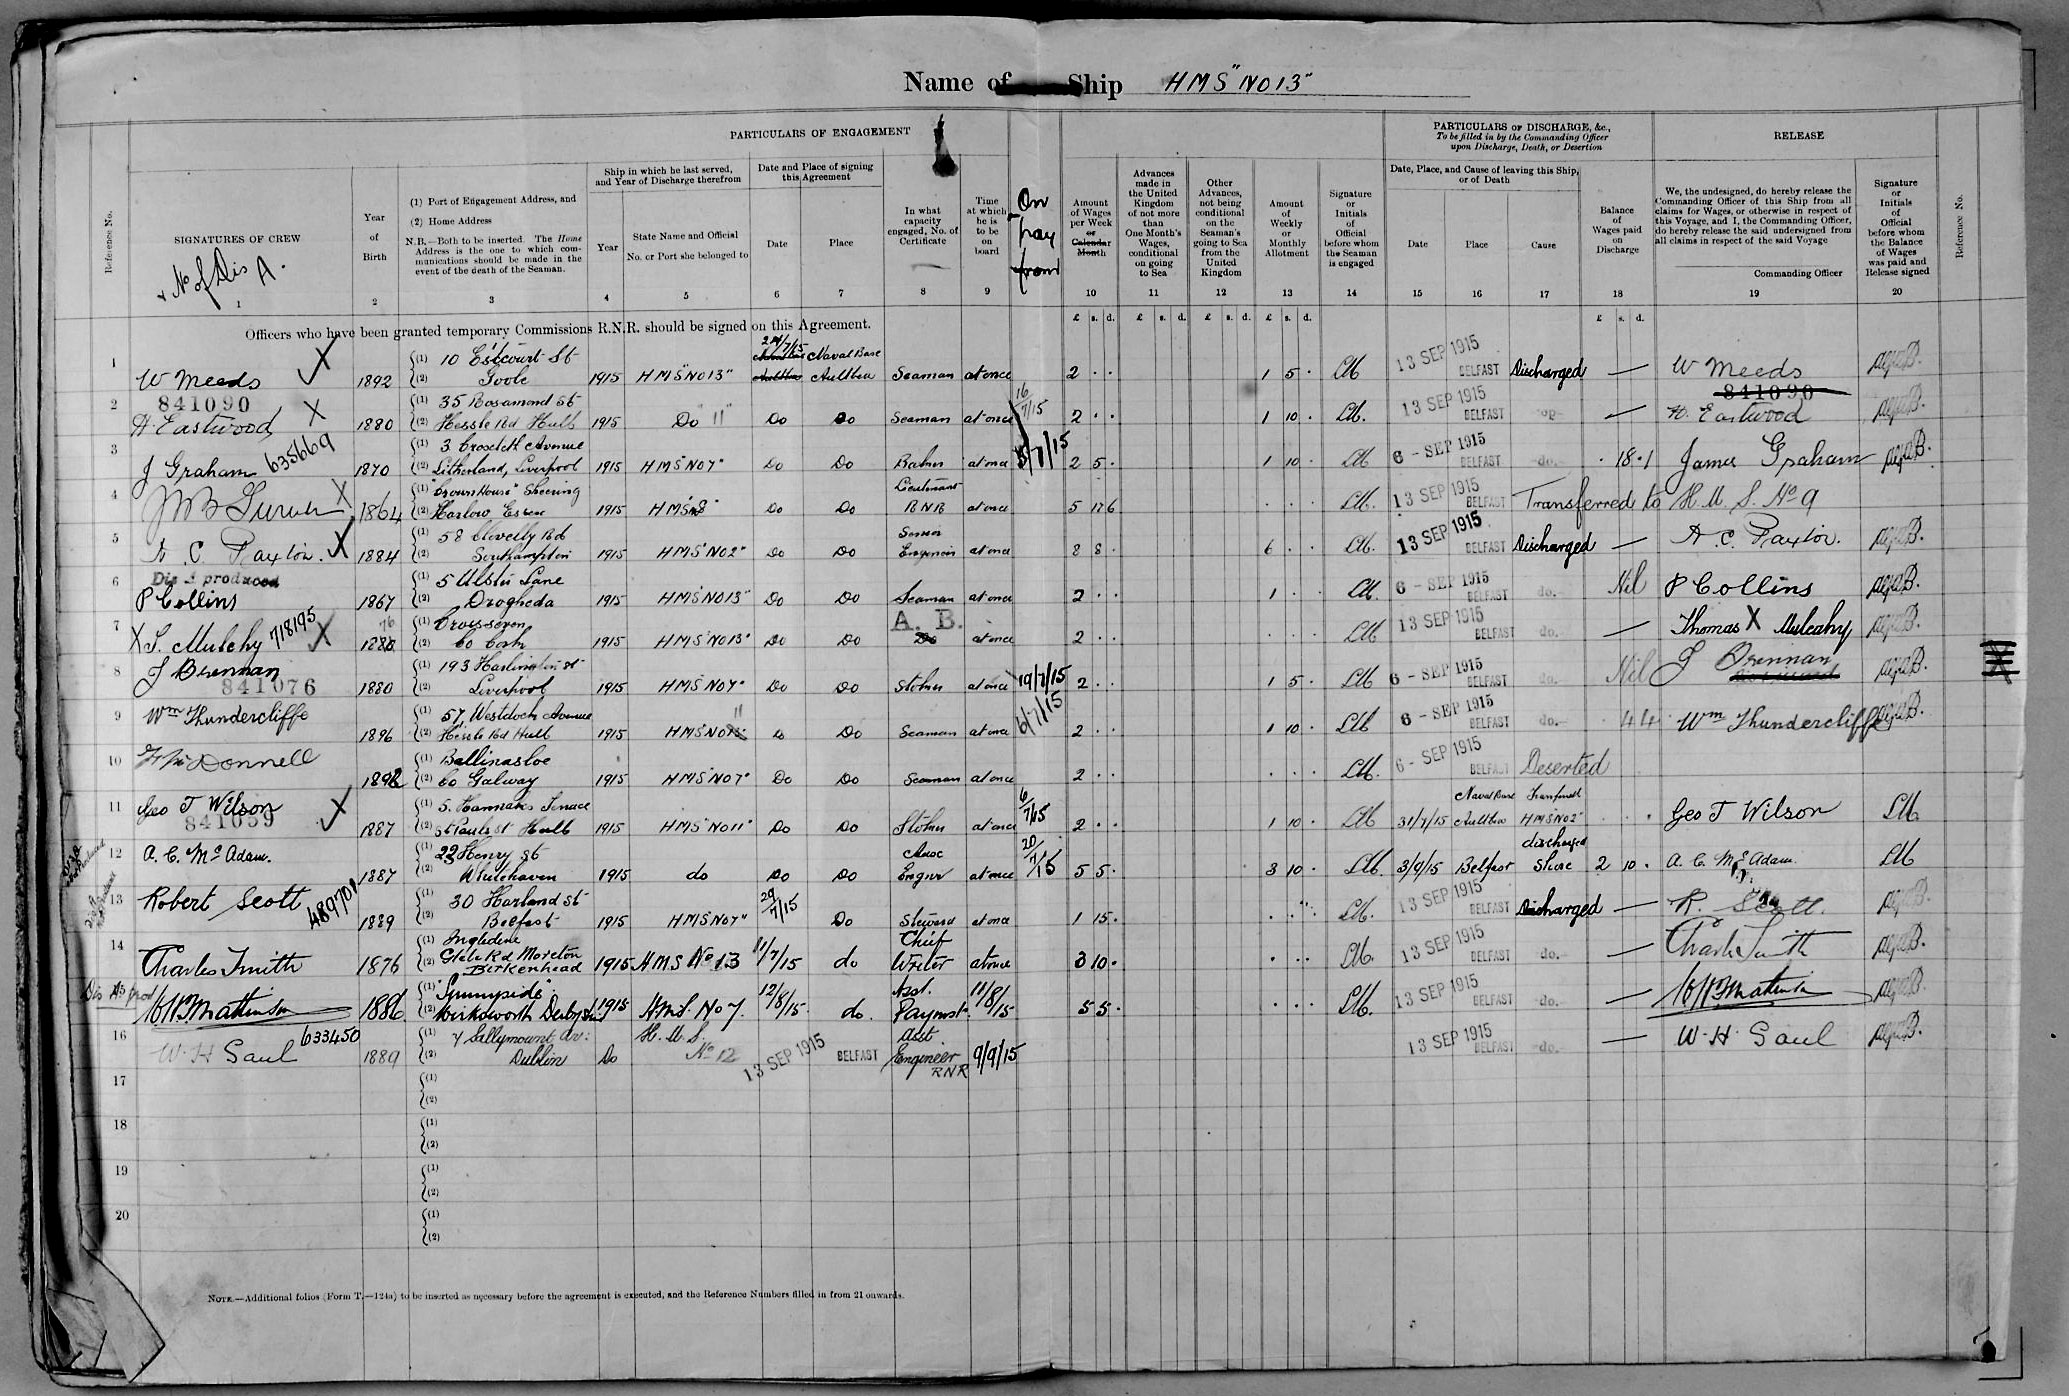 Name of Ship HMS "NO 13"
PARTICULARS OF ENGAGEMENT
PARTICULARS OF DISCHARGE, &c.,
To be filled in by the Commanding Officer
upon Discharge, Death, or Desertion
RELEASE
Reference No.
SIGNATURES OF CREW
No of Dis A.
1
Year
of
Birth
2
(1) Port of Engagement Address, and
(2) Home Address
N.B.—Both to be inserted. The Home
Address is the one to which com-
munications should be made in the
event of the death of the Seaman.
3
Ship in which he last served,
and Year of Discharge therefrom
Year
4
State Name and Official
No. or Port she belonged to
5
Date and Place of signing
this Agreement
Date
6
Place
7
In what
capacity
engaged, No. of
Certificate
8
Time
at which
he is
to be
on
board
9
On
pay
from
Amount
of Wages
per Week
or
Calendar
Month
10
Advances
made in
the United
Kingdom
of not more
than
One Month's
Wages,
conditional
on going
to Sea
11
Other
Advances,
not being
conditional
on the
Seaman's
going to Sea
from the
United
Kingdom
12
Amount
of
Weekly
or
Monthly
Allotment
13
Signature
or
Initials
of
Official
before whom
the Seaman
is engaged
14
Date, Place, and Cause of leaving this Ship,
or of Death
Date
15
Place
16
Cause
17
Balance
of
Wages paid
on
Discharge
18
We, the undersigned, do hereby release the
Commanding Officer of this Ship from all
claims for Wages, or otherwise in respect of
this Voyage, and I, the Commanding Officer,
do hereby release the said undersigned from
all claims in respect of the said Voyage
Commanding Officer
19
Signature
or
Initials
of
Official
before whom
the Balance
of Wages
was paid and
Release signed
20
Reference No.
£ s. d. £ s. d. £ s. d. £ s. d. £ s. d.
Officers who have been granted temporary Commissions R.N.R. should be signed on this Agreement.
1 W Meeds X 1892 (1) 10 Estcourt St 1915 HMS "NO 13" Naval Base Seaman at once 2 . . 1 5 . LM 13 SEP 1915 BELFAST Discharged — W Meeds
(2) Goole Aultbea
841090
2 H. Eastwood X 1880 (1) 35 Rosamond St 1915 Do "11" Do Do Seaman at once 16/7/15 2 . . 1 10 . LM. 13 SEP 1915 BELFAST — H. Eastwood
(2) Hessle Rd Hull
841090
3 J Graham 635669 1870 (1) 3 Croxteth Avenue 1915 HMS "NO 7" Do Do at once 2 5 . 1 10 . LM 6 - SEP 1915 BELFAST do. . 18 . 1 James Graham
(2) Litherland, Liverpool
4 X 1864 (1) "Crown House" Sheering 1915 Do Do Lieutenant at once 5 17 6 . . . LM. 13 SEP 1915 BELFAST Transferred to H.M.S. No 9
(2) Harlow Essex RNR
5 A. C. Paxton. X 1884 (1) 58 Clovelly Rd 1915 HMS "NO 2" Do Do Senior at once 8 8 . 6 . . LM. 13 SEP 1915 BELFAST Discharged — A. C. Paxton.
(2) Southampton Engineer
Dis A produced
6 P Collins 1867 (1) 5 Ulster Lane 1915 HMS "NO 13" Do Do Seaman at once 2 . . 1 . . LM 6 - SEP 1915 BELFAST do. Nil P Collins
(2) Drogheda
A. B.
7 X T. Mulchy 718195 X (1) 1915 HMS "NO 13" Do Do Do at once 2 . . . . . LM 13 SEP 1915 BELFAST do. — Thomas X Mulcahy
(2) Co Cork
8 J Brennan 1880 (1) 193 Harlington St 1915 HMS "NO 7" Do Do Stoker at once 19/7/15 2 . . 1 5 . LM 6 - SEP 1915 BELFAST do. Nil J Brennan
841076 (2) Liverpool
9 Wm Thundercliffe 1896 (1) 57, Westdock Avenue 1915 11 Do Seaman at once 6/7/15 2 . . 1 10 . LM 6 - SEP 1915 BELFAST do. . 4 4 Wm Thundercliffe
(2) Hessle Rd Hull
10 F McDonnell (1) Ballinasloe 1915 HMS "NO 7" Do Do Seaman at once 2 . . . . . LM. 6 - SEP 1915 BELFAST Deserted
(2) Co Galway
11 Geo T Wilson X 1887 (1) 5. Hannahs Terrace 1915 HMS "NO 11" Do Do Stoker at once 6/7/15 2 . . 1 10 . LM 31/7/15 Naval Base Aultbea HMS NO 2" . . . Geo T Wilson LM
841059 (2) St Pauls St Hull
12 A. C. McAdam. 1887 (1) 22 Henry St 1915 do Do Do Engnr at once 20/7/15 5 5 . 3 10 . LM 3/9/15 Belfast discharged Shore 2 10 . A. C. McAdam. LM
(2) Whitehaven
13 Robert Scott 489701 1889 (1) 30 Harland St 1915 HMS "NO 7" 29/7/15 Do Steward at once 1 15 . LM. 13 SEP 1915 BELFAST Discharged — R. Scott.
(2) Belfast
14 Charles Smith 1876 (1) Ingledene 1915 HMS No 13 11/7/15 do Chief Writer at once 3 10 . . . . LM. 13 SEP 1915 BELFAST do. — Charles Smith
(2) Glebe Rd Moreton
Birkenhead
15 1886 (1) "Sunnyside". 1915 H.M.S. No 7. 12/8/15. do. Asst. Paymstr 11/8/15 5 5 . . . . LM. 13 SEP 1915 BELFAST do. —
(2) Wirksworth
16 W. H Saul 633450 1889 (1) 4 Sallymount Av: Do H.M.S. No 12 13 SEP 1915 BELFAST Asst Engineer RNR 9/9/15 13 SEP 1915 BELFAST do. — W. H. Saul
(2) Dublin
17 (1)
(2)
18 (1)
(2)
19 (1)
(2)
20 (1)
(2)
NOTE.—Additional folios (Form T.—124a) to be inserted as necessary before the agreement is executed, and the Reference Numbers filled in from 21 onwards.